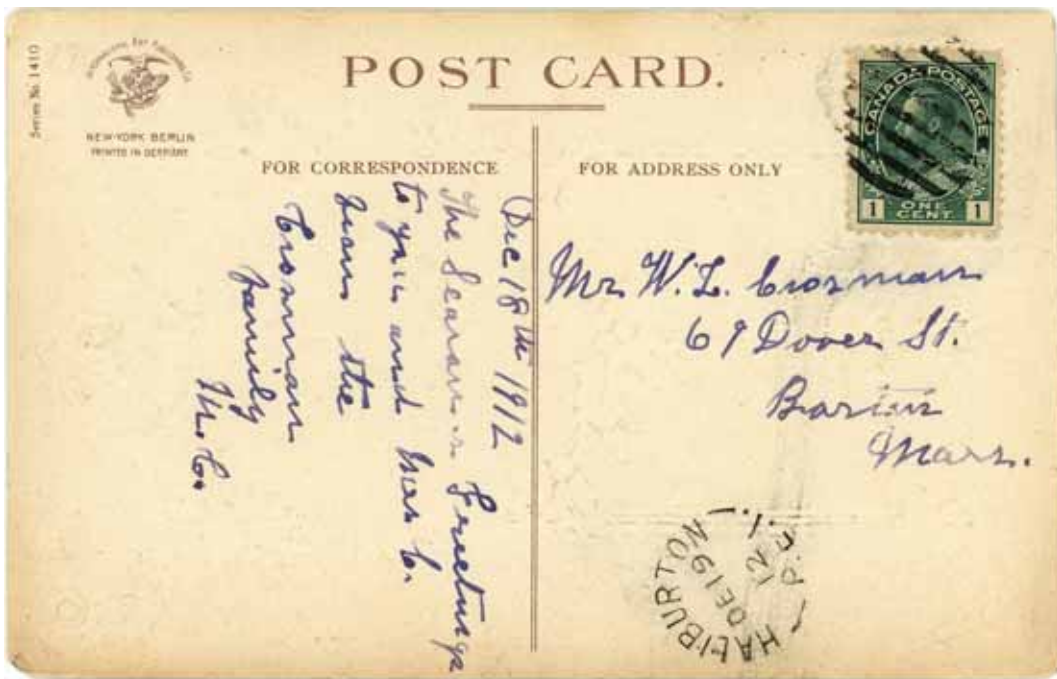 Series No. 1410
INTERNATIONAL ART PUBLISHING Co.
NEW-YORK BERLIN
PRINTED IN GERMANY
POST CARD.
FOR CORRESPONDENCE
FOR ADDRESS ONLY
CANADA POSTAGE
1 ONE CENT 1
Dec 18th 1912
The Season's Greetings
to you and Mrs C.
from the
Crosman
family
M.C.
Mr W.L. Crosman
67 Dover St.
Boston
Mass.
HALIBURTON
DE 19
12
P.E.I.